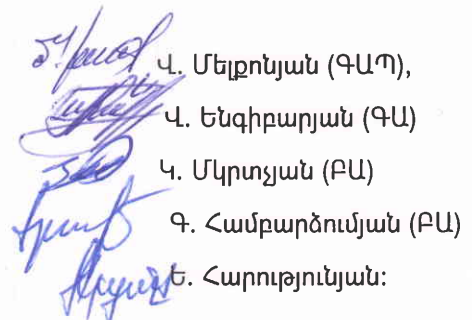 Վ. Մելքոնյան (ԳԱՊ),
Վ. Ենգիբարյան (ԳԱ)
Կ. Մկրտչյան (ԲԱ)
Գ. Համբարձումյան (ԲԱ)
Ե. Հարությունյան: